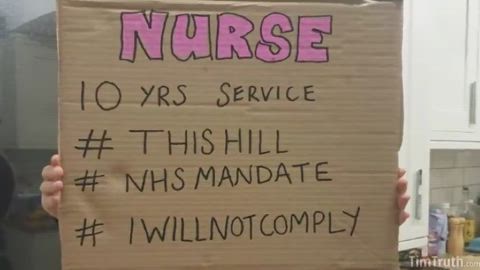 NURSE
10 YRS SERVICE
# THIS HILL
# NHS MANDATE
# IWILLNOTCOMPLY
TimTruth.com